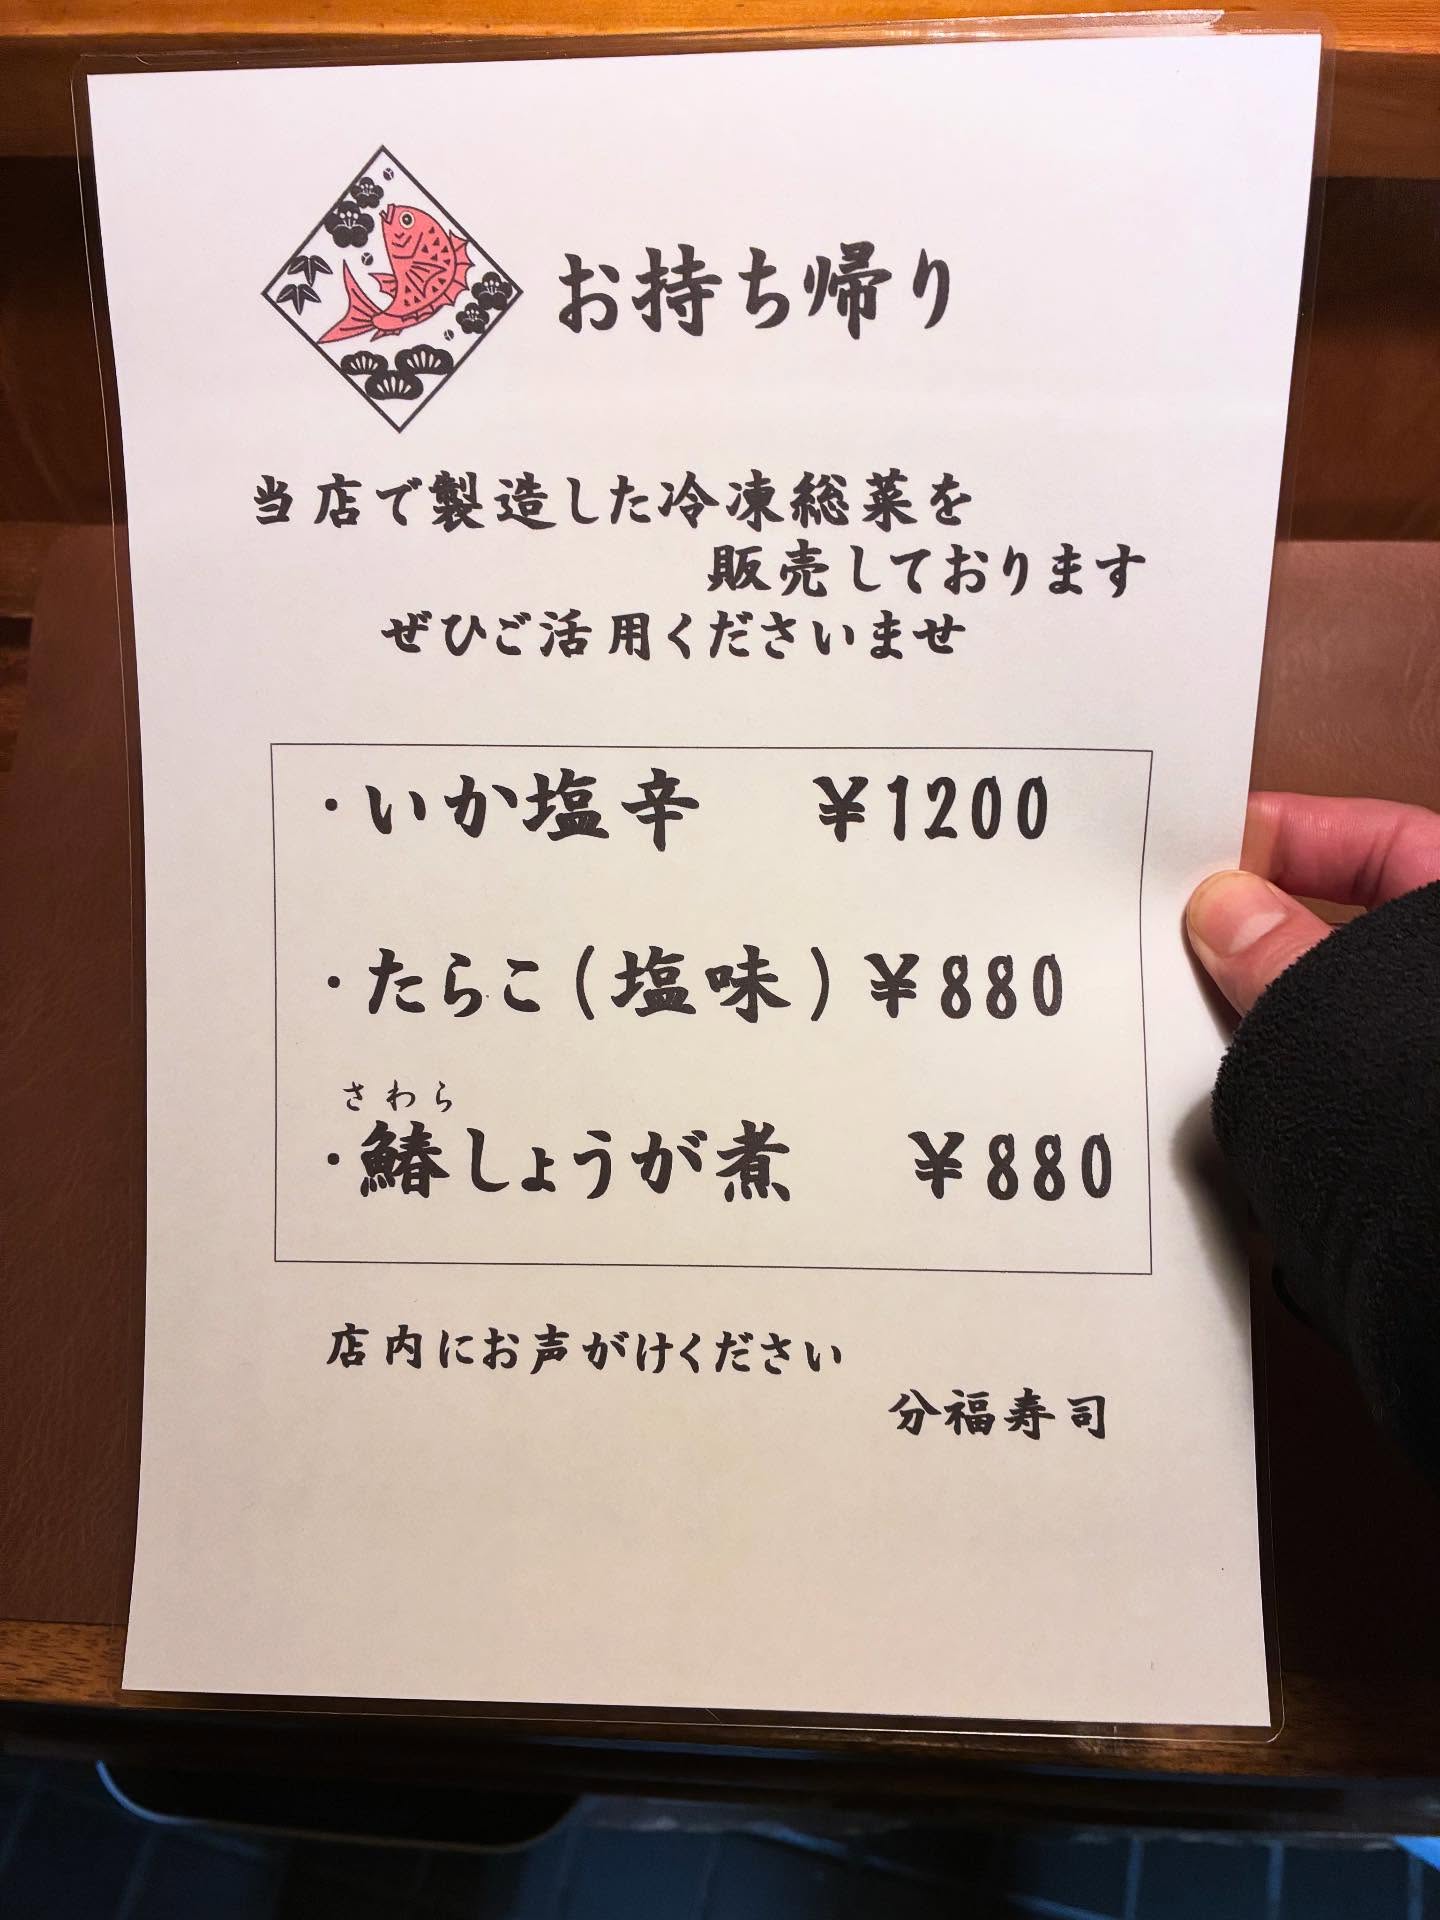 お持ち帰り
当店で製造した冷凍総菜を
販売しております
ぜひご活用くださいませ
・いか塩辛 ¥1200
・たらこ(塩味) ¥880
さわら
・鰆しょうが煮 ¥880
店内にお声がけください
分福寿司